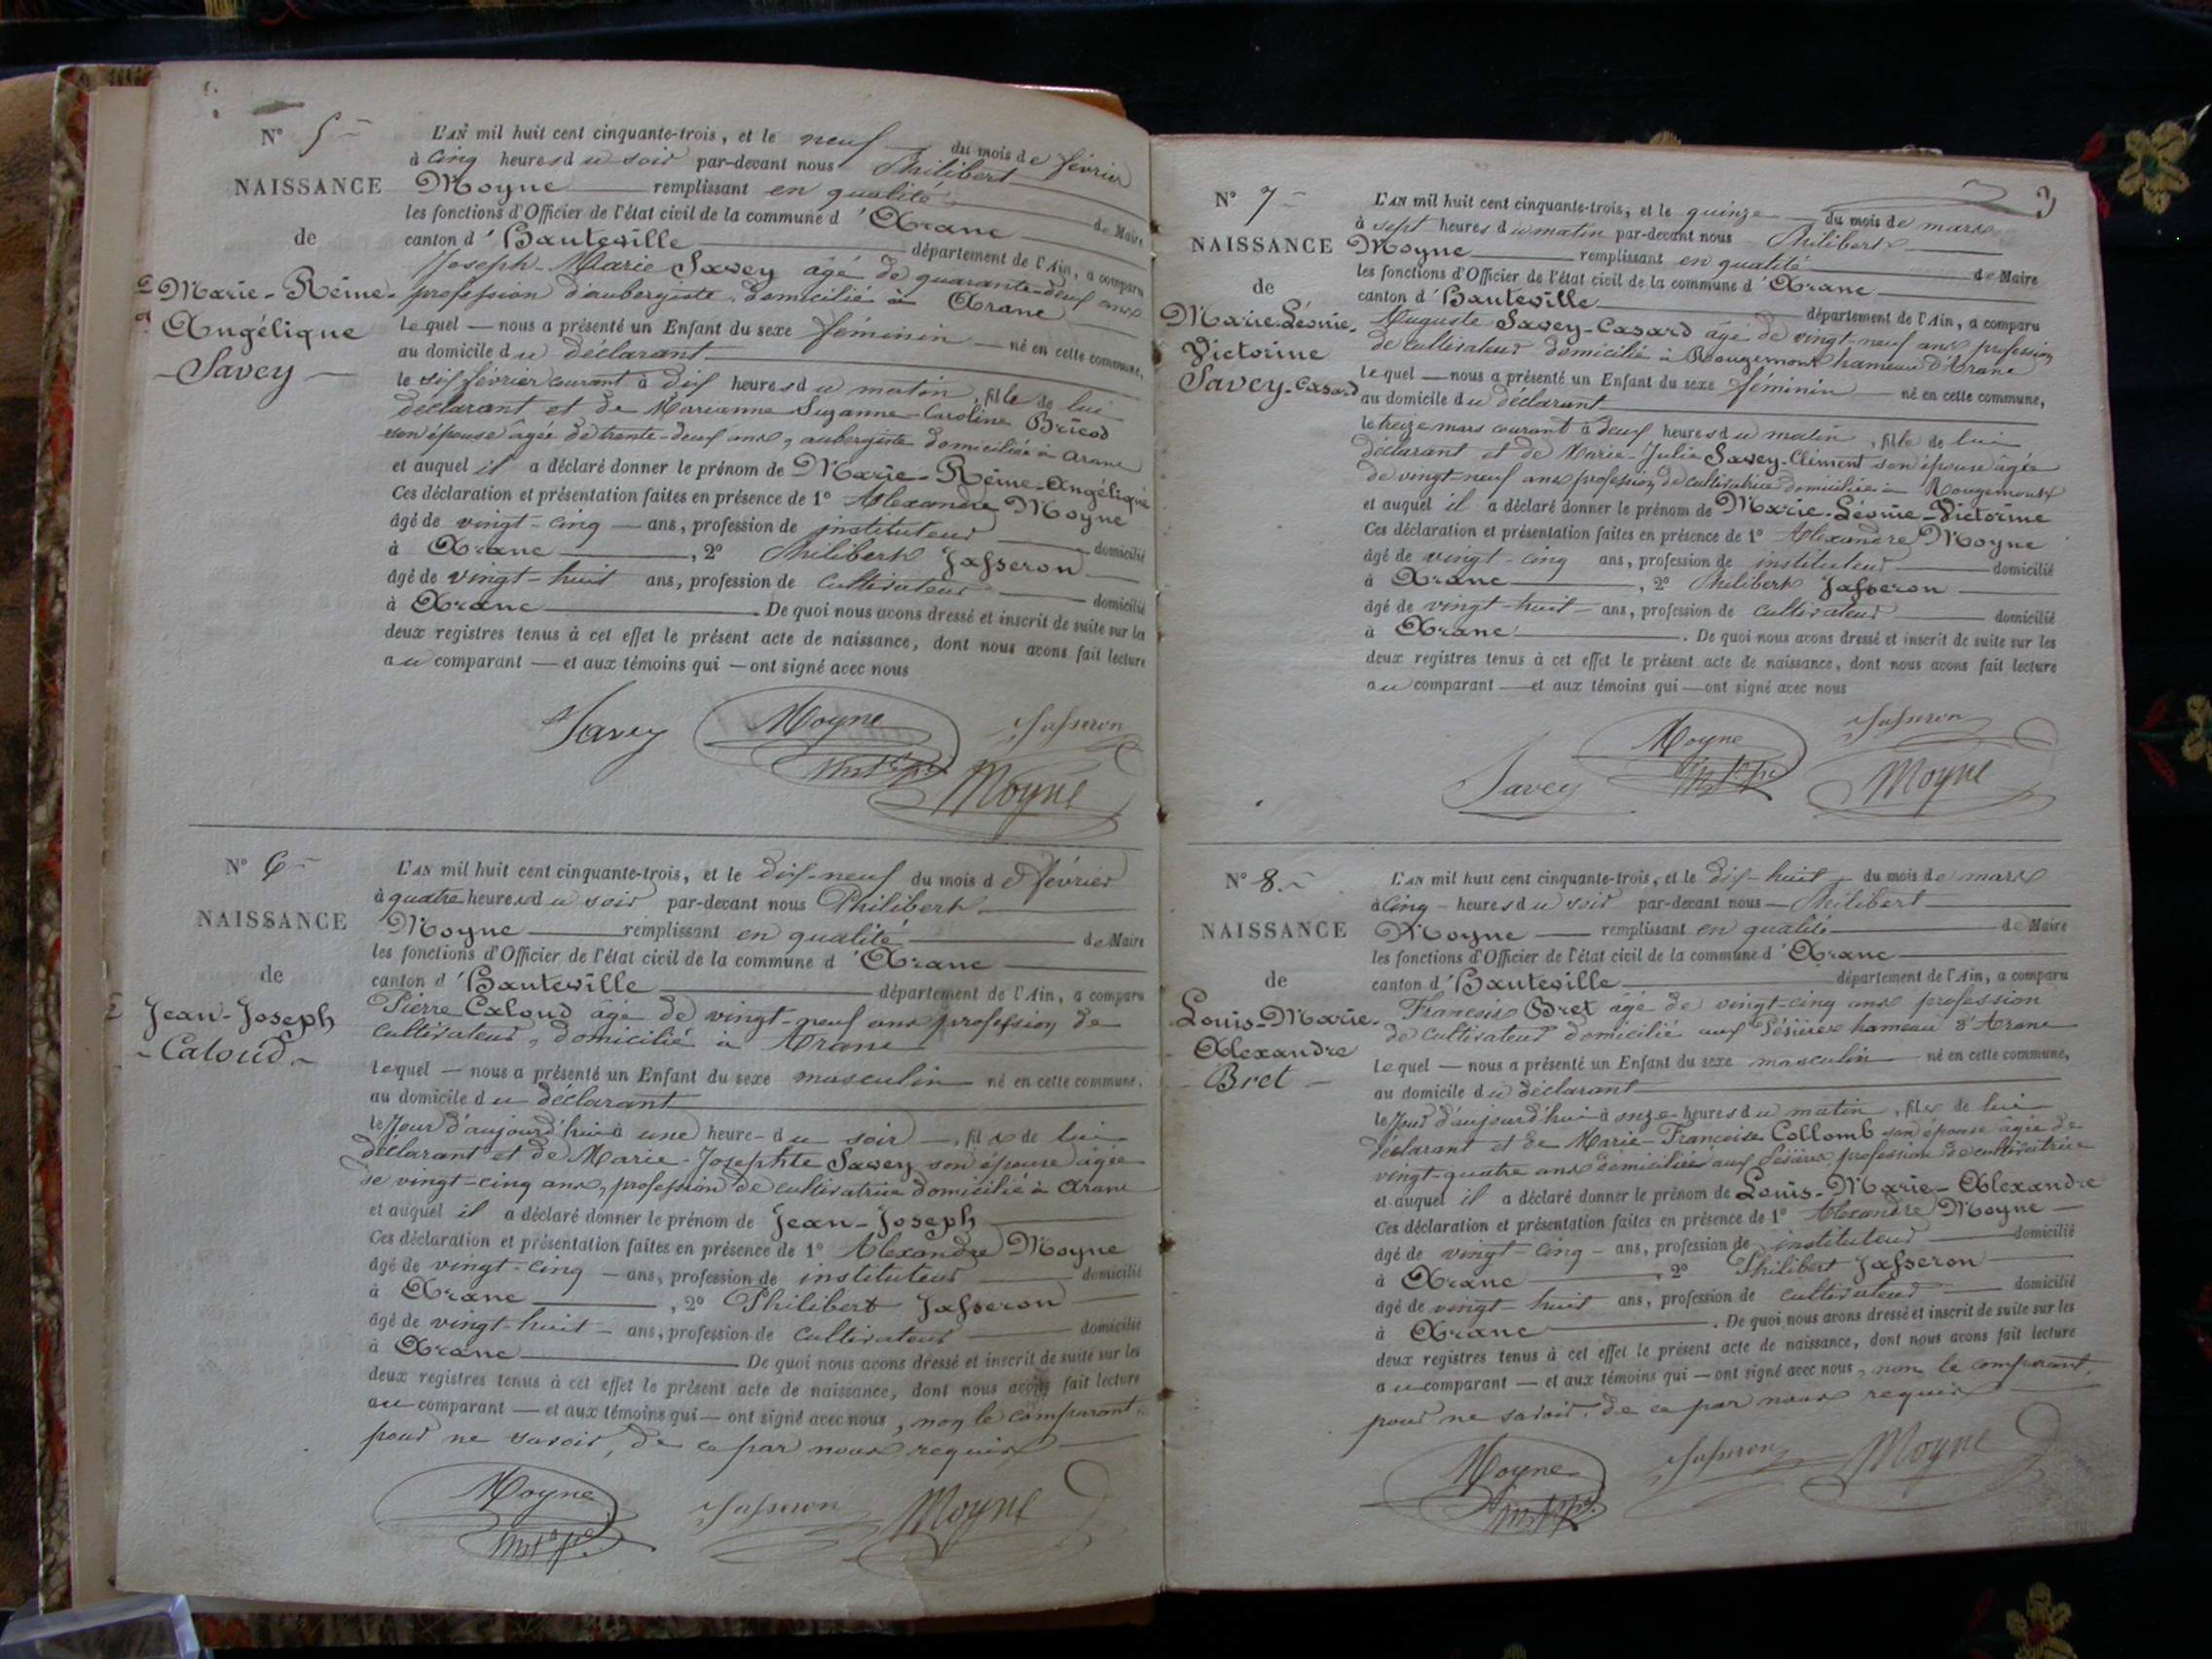 N° 5
NAISSANCE
de
Marie-Réine-
Angélique
Savey
L'AN mil huit cent cinquante-trois, et le neuf du mois de février
à cinq heures du soir par-devant nous Philibert
Moyne remplissant en qualité de Maire
les fonctions d'Officier de l'état civil de la commune d'Aranc
canton d'Hauteville département de l'Ain, a comparu
Joseph-Marie Savey âgé de quarante-deux ans
profession d'aubergiste domicilié à Aranc
lequel nous a présenté un Enfant du sexe féminin né en cette commune,
au domicile du déclarant
le six février courant à dix heures du matin, fille de lui
déclarant et de Marianne Suzanne-Caroline Bricod
son épouse âgée de trente-deux ans, aubergiste domiciliée à Aranc
et auquel il a déclaré donner le prénom de Marie-Réine-Angélique
Ces déclaration et présentation faites en présence de 1° Alexandre Moyne
âgé de vingt-cinq ans, profession de instituteur domicilié
à Aranc, 2° Philibert Jasseron
âgé de vingt-huit ans, profession de cultivateur domicilié
à Aranc. De quoi nous avons dressé et inscrit de suite sur les
deux registres tenus à cet effet le présent acte de naissance, dont nous avons fait lecture
au comparant et aux témoins qui ont signé avec nous
Savey Moyne Jasseron
Moyne
N° 6
NAISSANCE
de
Jean-Joseph
Caloud
L'AN mil huit cent cinquante-trois, et le dix-neuf du mois de février
à quatre heures du soir par-devant nous Philibert
Moyne remplissant en qualité de Maire
les fonctions d'Officier de l'état civil de la commune d'Aranc
canton d'Hauteville département de l'Ain, a comparu
Pierre Caloud âgé de vingt-neuf ans profession de
cultivateur, domicilié à Aranc
lequel nous a présenté un Enfant du sexe masculin né en cette commune,
au domicile du déclarant
le jour d'aujourd'hui à une heure du soir, fils de lui
déclarant et de Marie-Josephte Savey son épouse âgée
de vingt-cinq ans, profession de cultivatrice domicilié à Aranc
et auquel il a déclaré donner le prénom de Jean-Joseph
Ces déclaration et présentation faites en présence de 1° Alexandre Moyne
âgé de vingt-cinq ans, profession de instituteur domicilié
à Aranc, 2° Philibert Jasseron
âgé de vingt-huit ans, profession de cultivateur domicilié
à Aranc De quoi nous avons dressé et inscrit de suite sur les
deux registres tenus à cet effet le présent acte de naissance, dont nous avons fait lecture
au comparant et aux témoins qui ont signé avec nous, non le comparant,
pour ne savoir, de ce par nous requis
Moyne Jasseron Moyne
3
N° 7
NAISSANCE
de
Marie-Léonie-
Victorine
Savey-Casard
L'AN mil huit cent cinquante-trois, et le quinze du mois de mars
à sept heures du matin par-devant nous Philibert
Moyne remplissant en qualité de Maire
les fonctions d'Officier de l'état civil de la commune d'Aranc
canton d'Hauteville département de l'Ain, a comparu
Auguste Savey-Casard âgé de vingt-neuf ans profession
de cultivateur domicilié à Rougemont hameau d'Aranc
lequel nous a présenté un Enfant du sexe féminin né en cette commune,
au domicile du déclarant
le treize mars courant à deux heures du matin, fille de lui
déclarant et de Marie-Julie Savey-Clément son épouse âgée
de vingt-neuf ans profession de cultivatrice domiciliée à Rougemont
et auquel il a déclaré donner le prénom de Marie-Léonie-Victorine
Ces déclaration et présentation faites en présence de 1° Alexandre Moyne
âgé de vingt-cinq ans, profession de instituteur domicilié
à Aranc, 2° Philibert Jasseron
âgé de vingt-huit ans, profession de cultivateur domicilié
à Aranc. De quoi nous avons dressé et inscrit de suite sur les
deux registres tenus à cet effet le présent acte de naissance, dont nous avons fait lecture
au comparant et aux témoins qui ont signé avec nous
Moyne Jasseron
Savey Moyne
N° 8
NAISSANCE
de
Louis-Marie-
Alexandre
Bret
L'AN mil huit cent cinquante-trois, et le dix-huit du mois de mars
à cinq heures du soir par-devant nous Philibert
Moyne remplissant en qualité de Maire
les fonctions d'Officier de l'état civil de la commune d'Aranc
canton d'Hauteville département de l'Ain, a comparu
François Bret âgé de vingt-cinq ans profession
de cultivateur domicilié aux hameau d'Aranc
lequel nous a présenté un Enfant du sexe masculin né en cette commune,
au domicile du déclarant
le jour d'aujourd'hui à onze heures du matin, fils de lui
déclarant et de Marie-Françoise Collomb son épouse âgée de
vingt-quatre ans domiciliée aux profession de cultivatrice
et auquel il a déclaré donner le prénom de Louis-Marie-Alexandre
Ces déclaration et présentation faites en présence de 1° Alexandre Moyne
âgé de vingt-cinq ans, profession de instituteur domicilié
à Aranc, 2° Philibert Jasseron
âgé de vingt-huit ans, profession de cultivateur domicilié
à Aranc. De quoi nous avons dressé et inscrit de suite sur les
deux registres tenus à cet effet le présent acte de naissance, dont nous avons fait lecture
au comparant et aux témoins qui ont signé avec nous, non le comparant,
pour ne savoir, de ce par nous requis
Moyne Jasseron Moyne